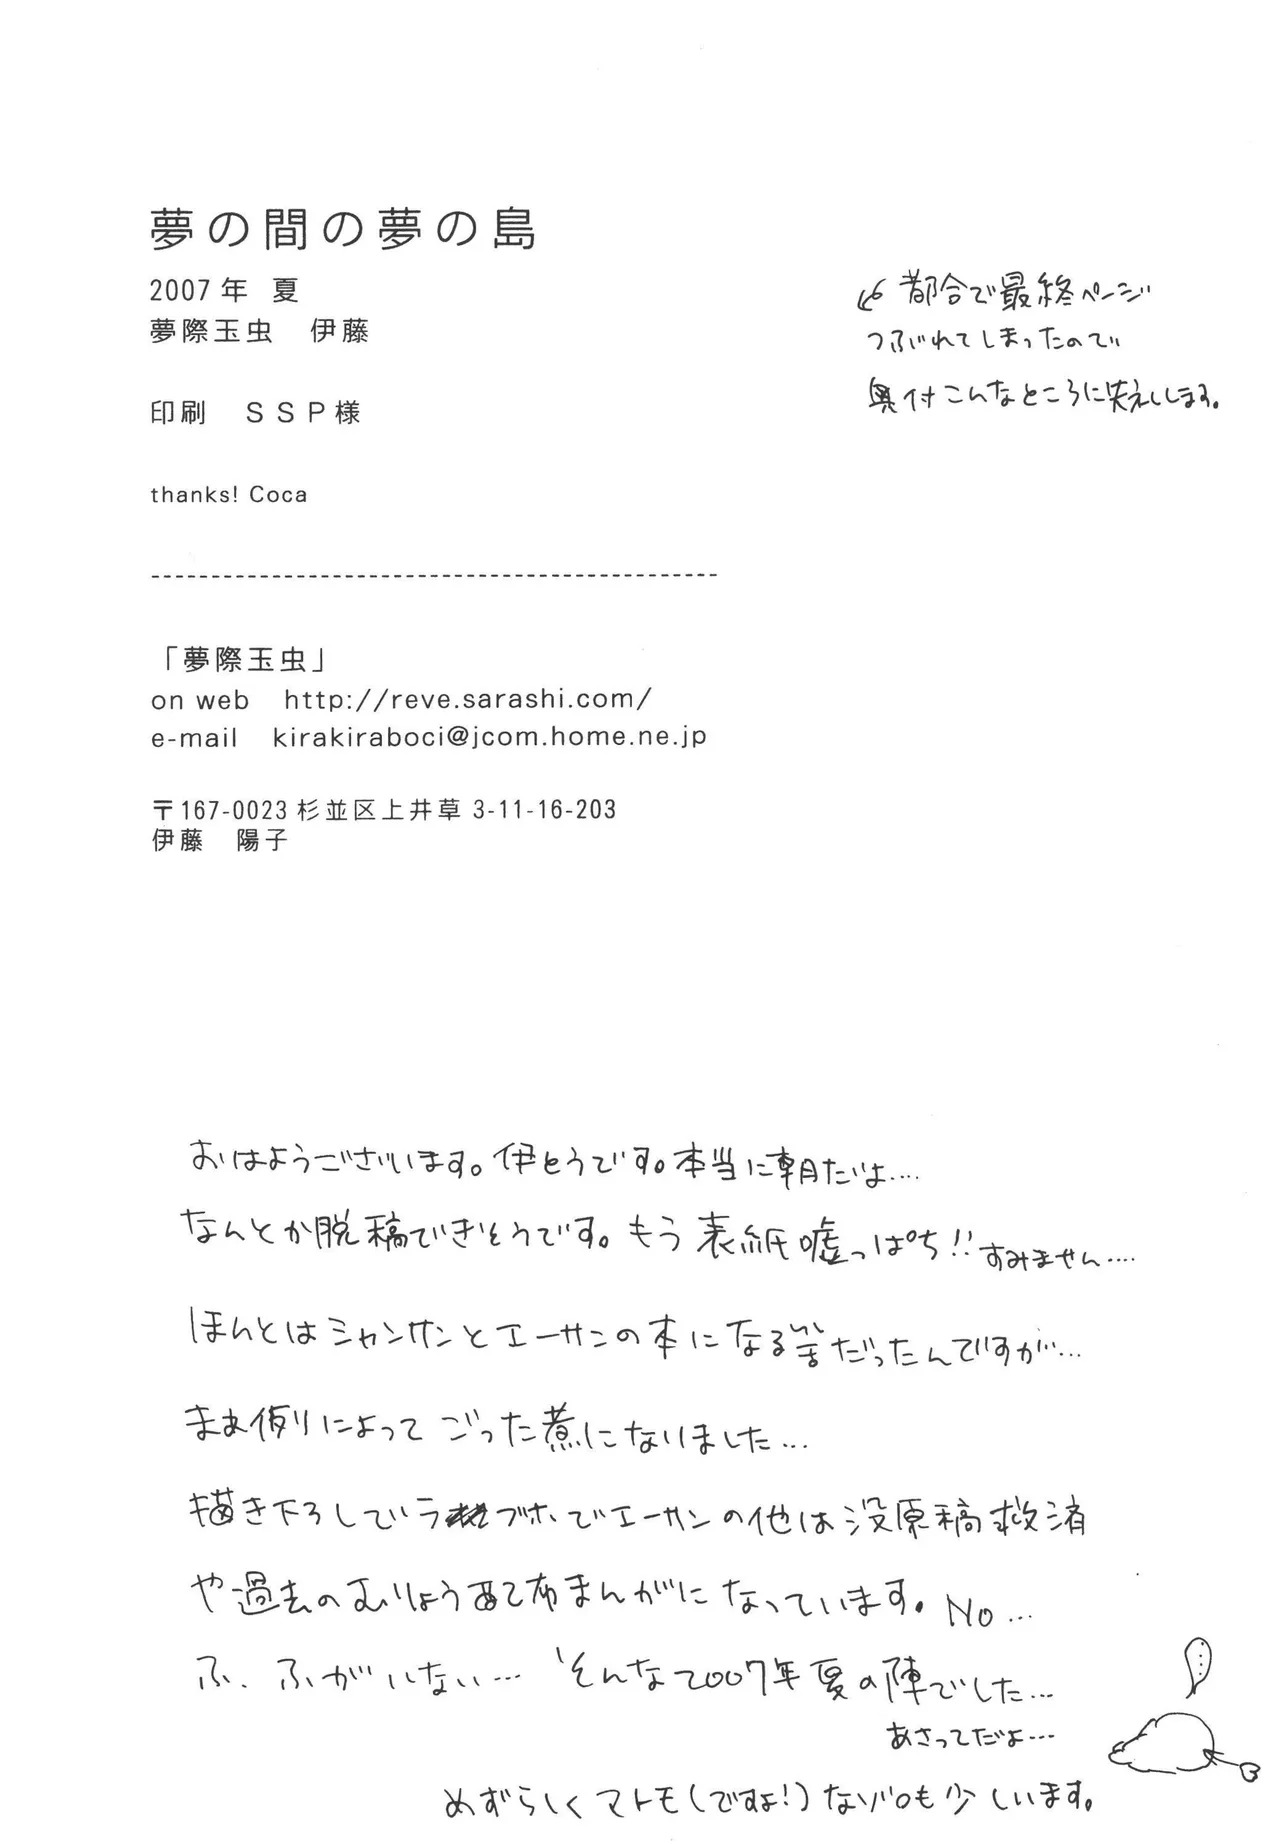 夢の間の夢の島
2007年 夏
夢際玉虫 伊藤
印刷 SSP様
thanks! Coca
都合で最終ページ
つぶれてしまったので
奥付こんなところに失礼します。
「夢際玉虫」
on web http://reve.sarashi.com/
e-mail kirakiraboci@jcom.home.ne.jp
〒167-0023 杉並区上井草 3-11-16-203
伊藤 陽子
おはようございます。伊とうです。本当に朝だよ....
なんとか脱稿できそうです。もう表紙嘘っぱち!! すみません....
ほんとはシャンサンとエーサンの本になる筈だったんですが...
まぁ例によってごった煮になりました...
描き下ろしている ゾホでエーサンの他は没原稿救済
や過去のむりょうはい布まんがになっています。No...
ふ、ふがいない... そんな2007年夏の陣でした...
あさってだよ...
めずらしくマトモ(ですよ!)なゾロも少しいます。